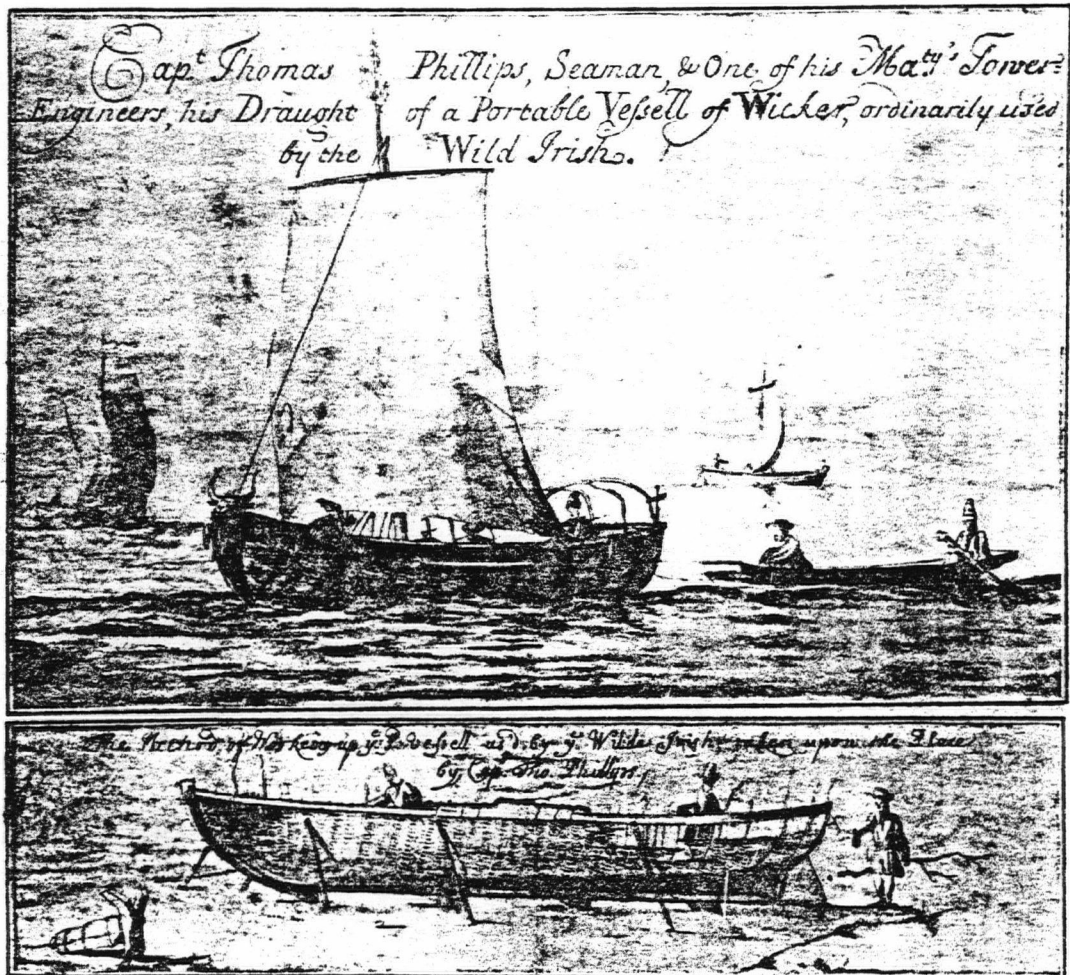 Capt Thomas Phillips, Seaman, & One of his Maty's Tower-
Engineers, his Draught of a Portable Vessell of Wicker, ordinarily used
by the Wild Irish.
The Method of Working up ye Vessell us'd by ye Wilde Irish, taken upon the Place
by Cap. Tho. Phillips